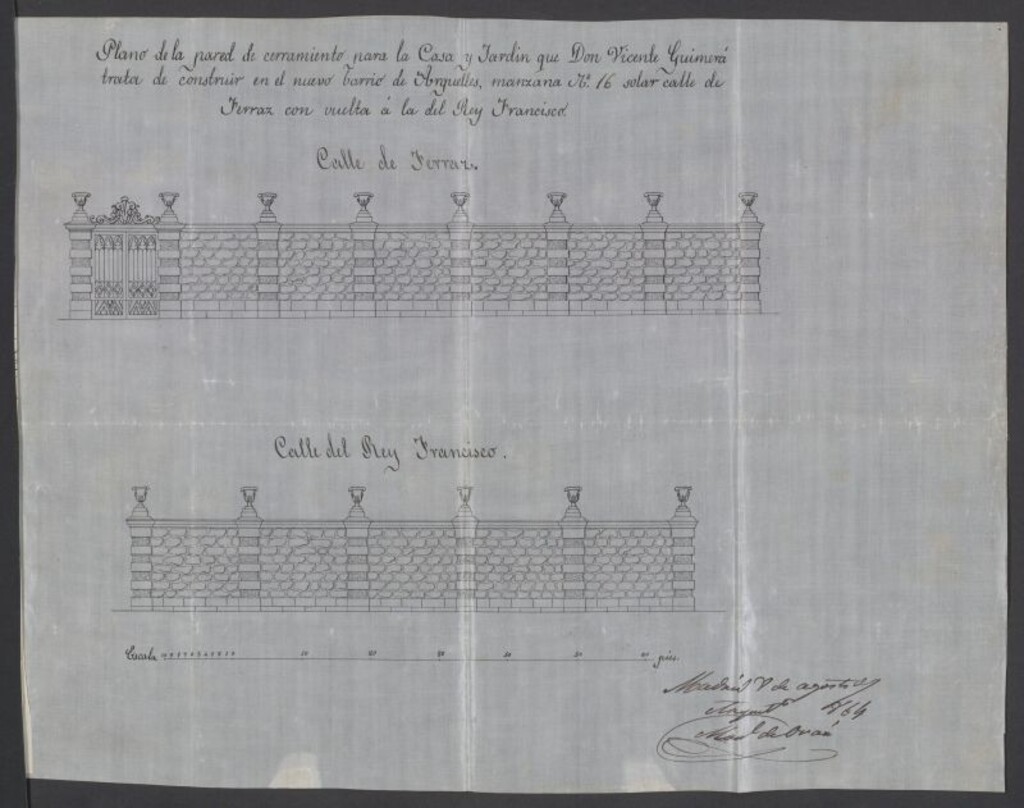 Plano de la pared de cerramiento para la Casa y Jardin que Don Vicente Guimerá
trata de construir en el nuevo barrio de Arguelles, manzana Nº 16 solar calle de
Ferraz con vuelta á la del Rey Francisco
Calle de Ferraz.
Calle del Rey Francisco.
Escala 10 9 8 7 6 5 4 3 2 1 0 10 20 30 40 50 60 pies.
Madrid 8 de agosto de
Arquitº 1864
de